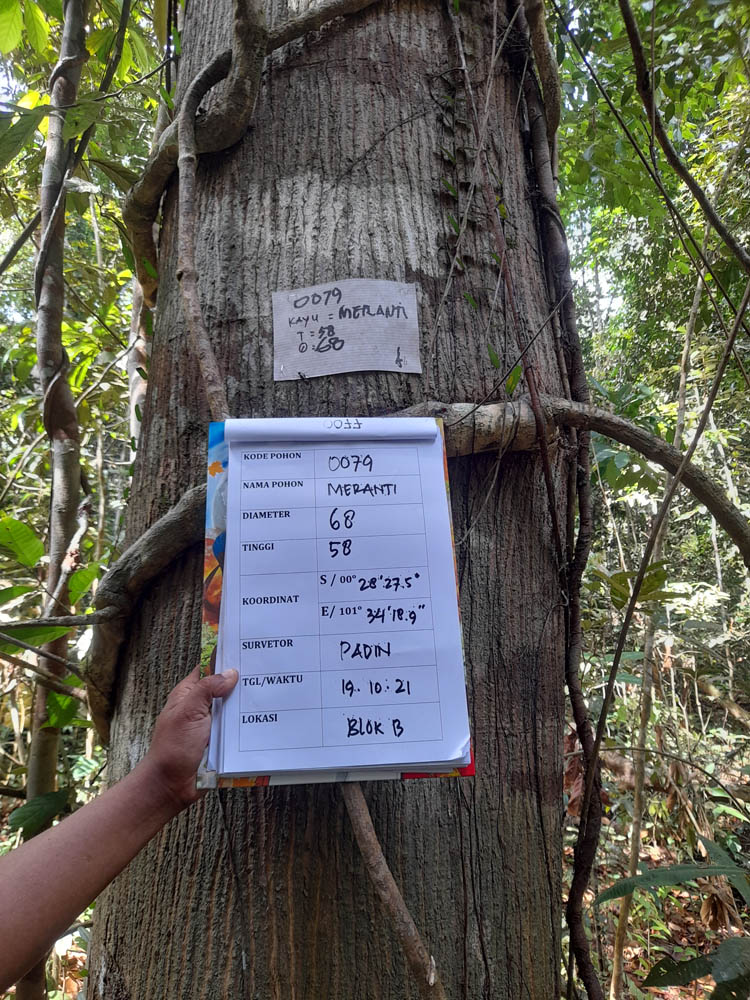 0079
KAYU = MERANTI
T = 58
Ø : 68
KODE POHON 0079
NAMA POHON MERANTI
DIAMETER 68
TINGGI 58
KOORDINAT S / 00° 28'27.5"
E/ 101° 34'18.9"
SURVETOR PADIN
TGL/WAKTU 19. 10. 21
LOKASI BLOK B